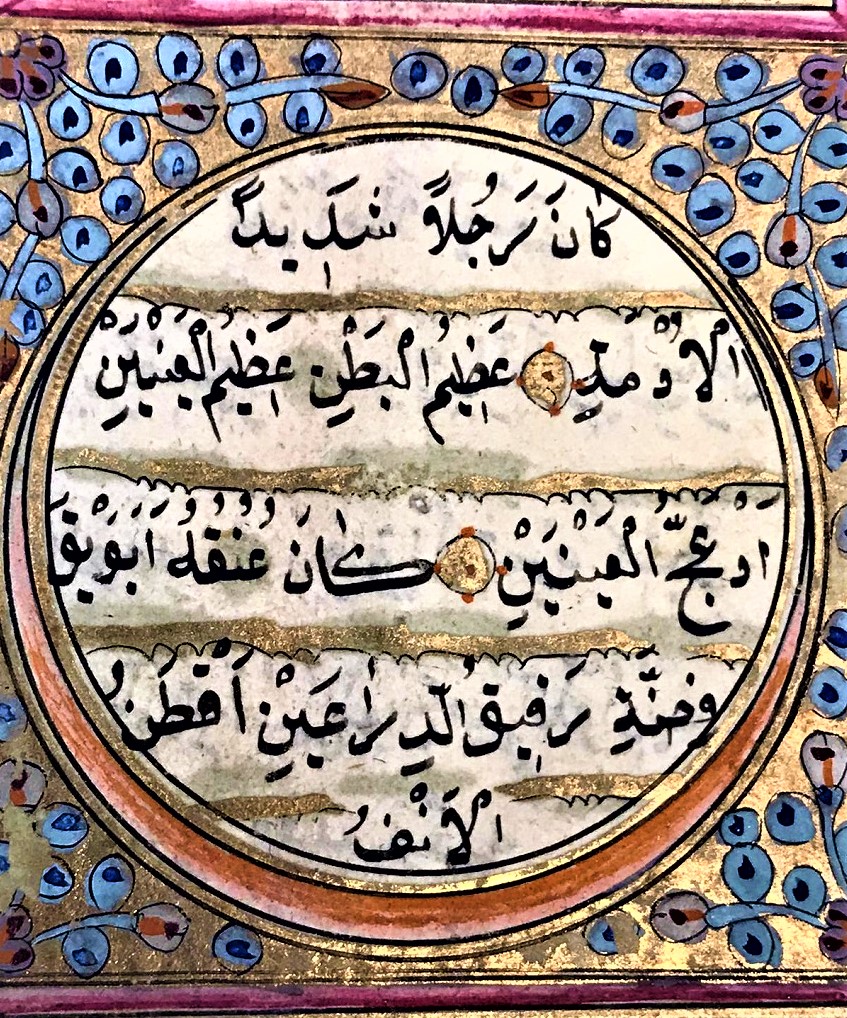 كَانَ رَجُلاً شَدِيدَ
الْاُدْمَةِ عَظِيمُ الْبَطْنِ عَظِيمُ الْعَيْنَيْنِ
اَدْعَجُّ الْعَيْنَيْنِ كَانَ عُنُقُهُ اَبْرِيقُ
فِضَّةٍ رَقِيقِ الذِّرَاعَيْنِ اَقْطَنُ
الْاَنْفُ